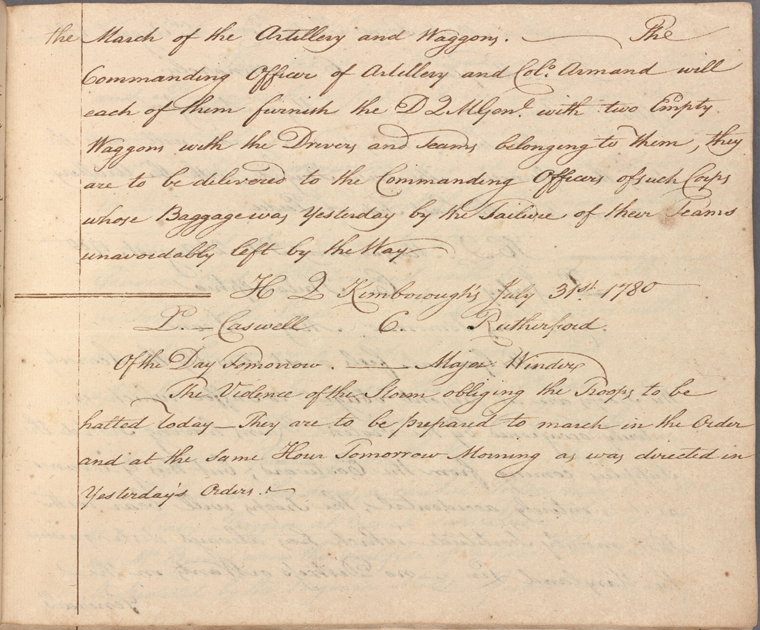 the March of the Artillery and Waggons. — The
Commanding Officer of Artillery and Col.º Armand will
each of them furnish the D Q M Genl. with two Empty
Waggons with the Drivers and Teams belonging to them, they
are to be delivered to the Commanding Officers of such Corps
whose Baggage was Yesterday by the Failure of their Teams
unavoidably left by the Way
H Q Kimborough's July 31st 1780
P. — Caswell C. Rutherford.
Of the Day Tomorrow. — Major Winder
The Violence of the Storm obliging the Troops to be
halted today — They are to be prepared to march in the Order
and at the Same Hour Tomorrow Morning as was directed in
Yesterday's Orders.